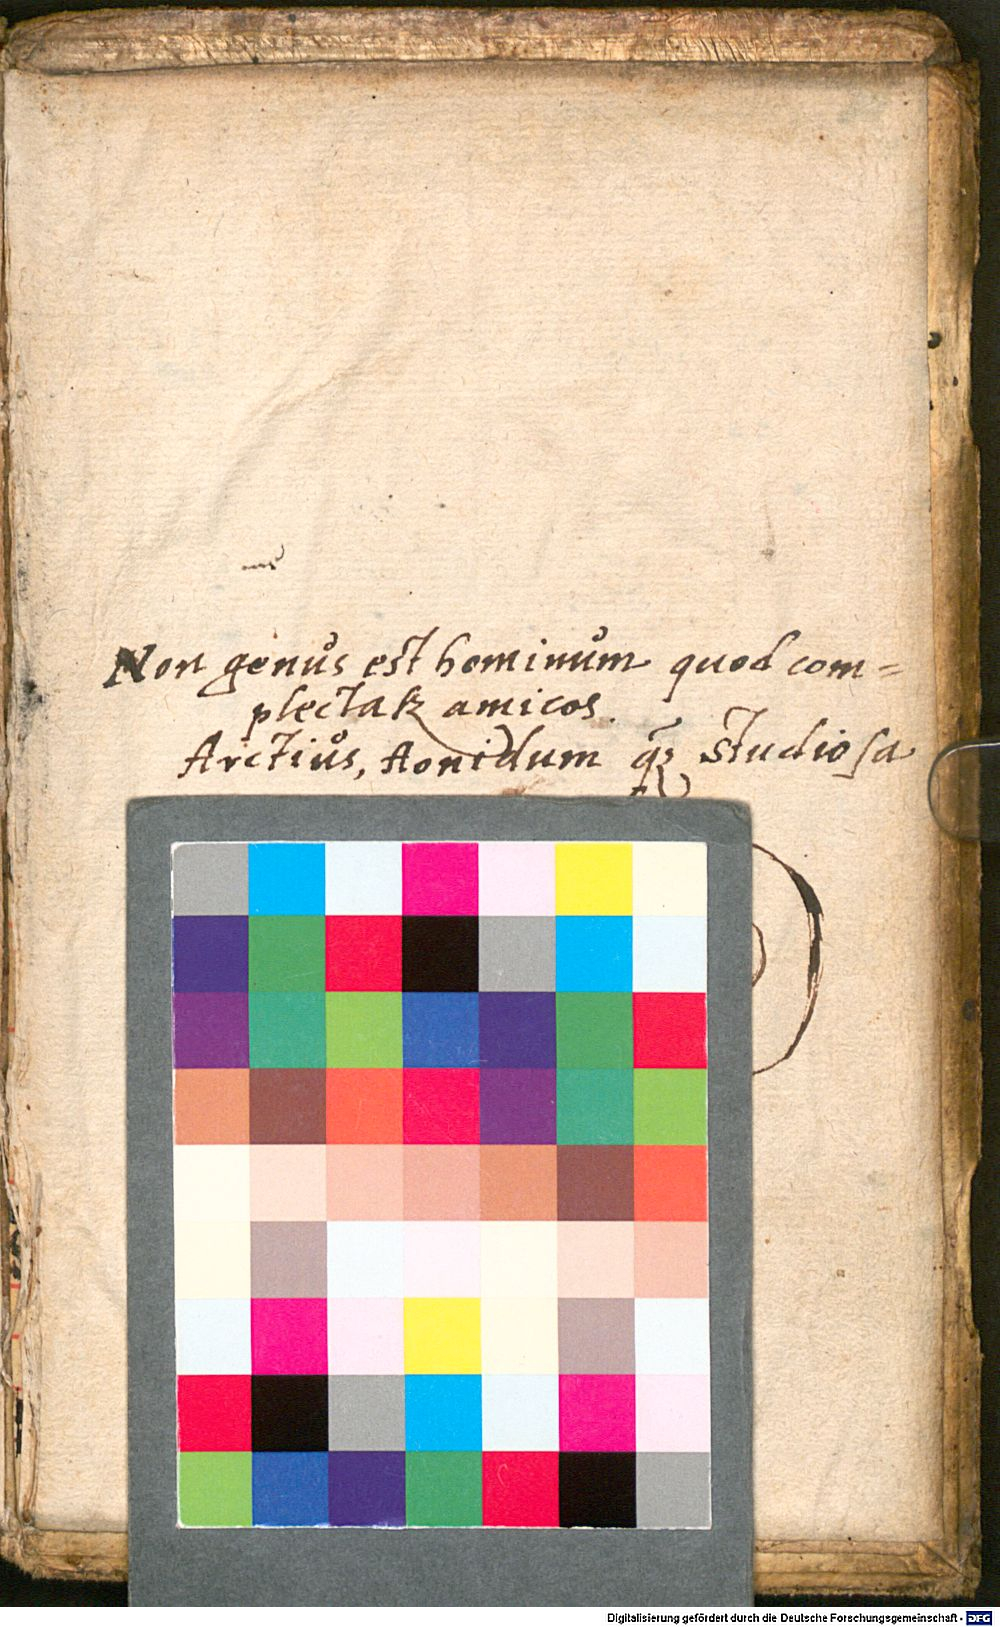 Non genus est hominum quod com=
plectatꝛ amicos.
Arctius, Aonidum qꝫ studiosa
Digitalisierung gefördert durch die Deutsche Forschungsgemeinschaft - DFG